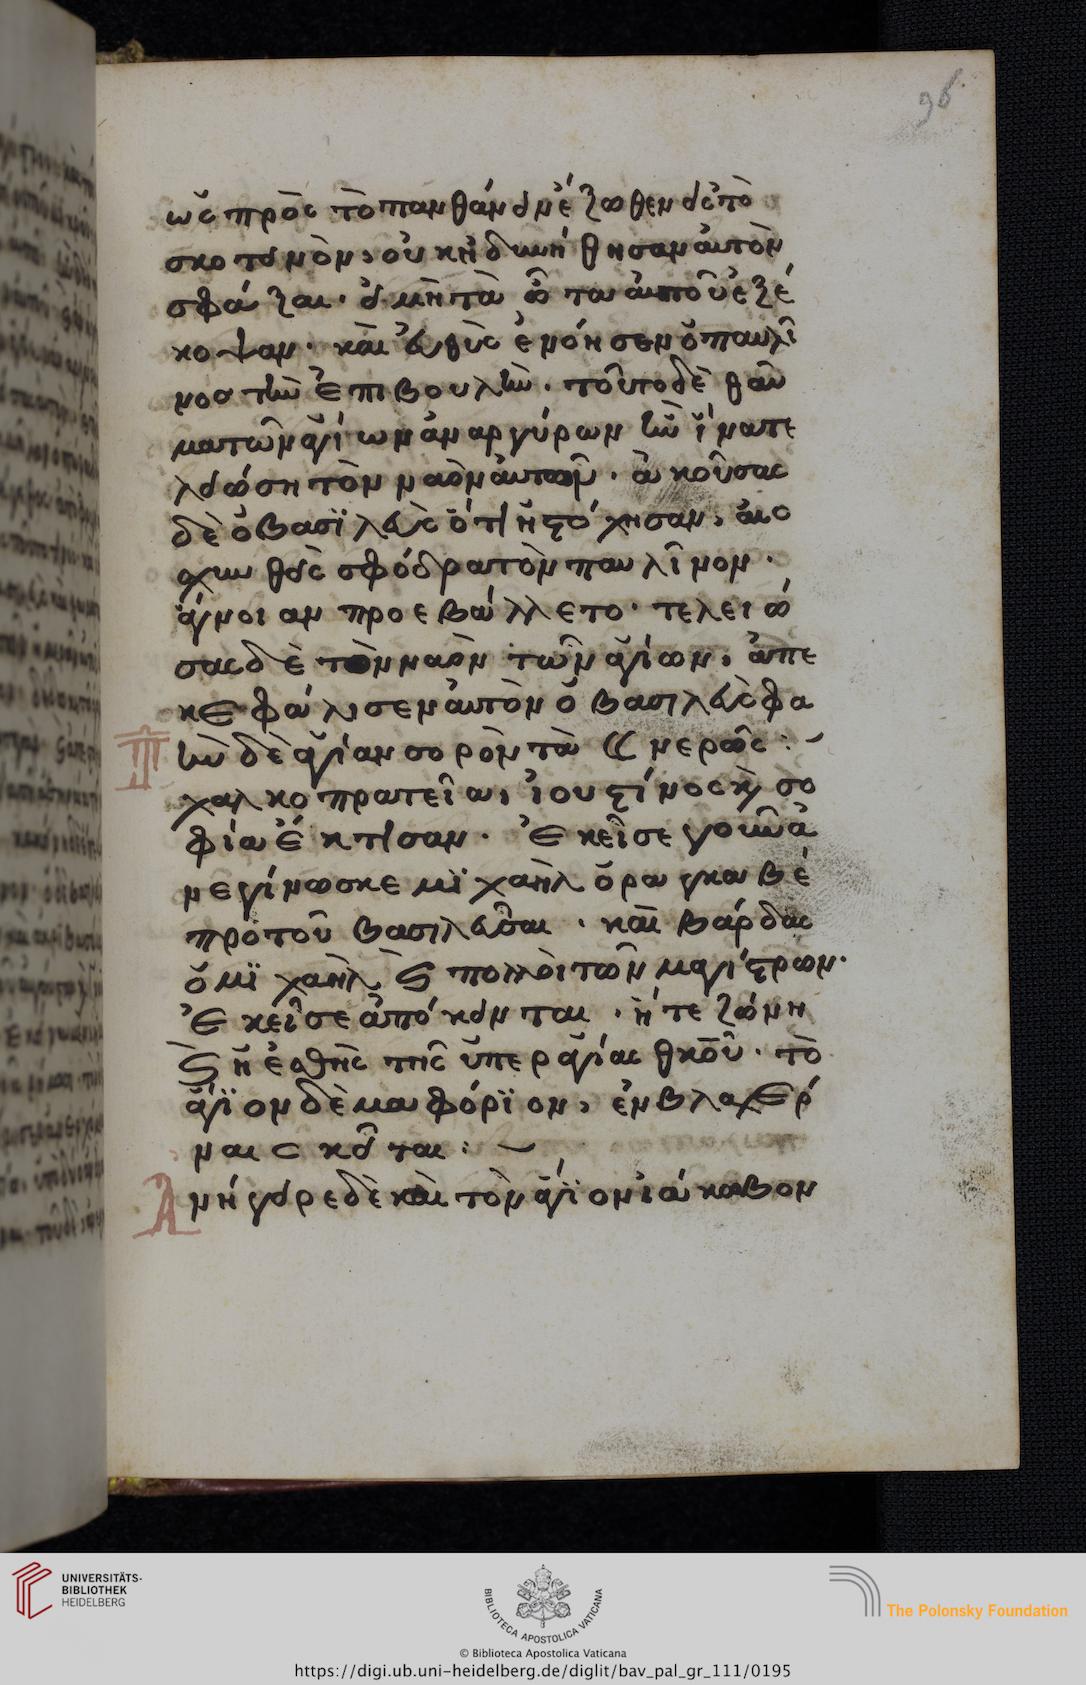 96
ὡς πρὸς τὸ παρθάνουν ἔξωθεν ἐς τὸ
σκοτουνὸν, οὐκ ἠδυνήθησαν αὐτὸν
σφάξαι· οὐ μὴ τὰ ὦτα αὐτοῦ ἐξέ
κοψαν· καὶ εὐθὺς ἐνόησεν ὁ παυλῖ
νος τὴν ἐπιβουλὴν· τοῦτο δὲ θαῦ
μα τῶν ἁγίων ἀναργύρων ἦν ἵνα τε
λϊώση τὸν ναὸν αὐτῶν· ἀκούσας
δὲ ὁ βασϊλεὺς ὅτι ἠστόχησαν, αἰσ
χυνθεὶς σφόδρα τὸν παυλῖνον·
ἄγνοιαν προεβάλλετο· τελειώ
σας δὲ τὸν ναὸν τῶν ἁγίων, ἀπε
κεφάλισεν αὐτὸν ὁ βασιλεὺς φα
Τὴν δὲ ἁγίαν σορὸν τὰ νερῶς :~
χαλκοπρατεῖα, ἰουστίνος κ σο
φία ἔκτισαν· Ἐκεῖσε γοῦν ἀ
νεγίνωσκε μϊχαὴλ ὁ ραγκαβέ
πρὸ τοῦ βασιλεῦσαι· καὶ βάρδας
ὁ μϊχαὴλ καὶ πολλοὶ τῶν μαγίστρων·
Ἐκεῖσε ἀπόκεινται· ἡ τε ζώνη
καὶ ἡ ἐσθὴς τῆς ὑπεραγίας θκου· τὸ
ἅγϊον δὲ μαφόρϊον, ἐν βλαχέρ
ναις κεῖται :~
Ἀνήγειρε δὲ καὶ τὸν ἅγϊον ἰάκωβον
UNIVERSITÄTS-
BIBLIOTHEK
HEIDELBERG
BIBLIOTECA APOSTOLICA VATICANA
The Polonsky Foundation
© Biblioteca Apostolica Vaticana
https://digi.ub.uni-heidelberg.de/diglit/bav_pal_gr_111/0195